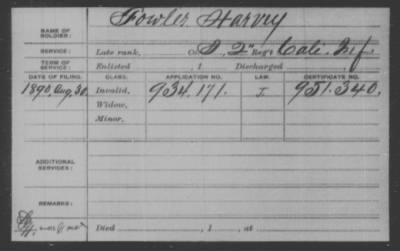 Fowler Harvey
NAME OF SOLDIER:
SERVICE: Late rank, Co. 2" Reg't Cali. Inf.
TERM OF SERVICE: Enlisted , 1 Discharged , 1
DATE OF FILING. CLASS. APPLICATION NO. LAW. CERTIFICATE NO.
1890, Aug, 30. Invalid, 934.171. 951.340.
Widow,
Minor,
ADDITIONAL SERVICES:
REMARKS:
Died , 1 , at